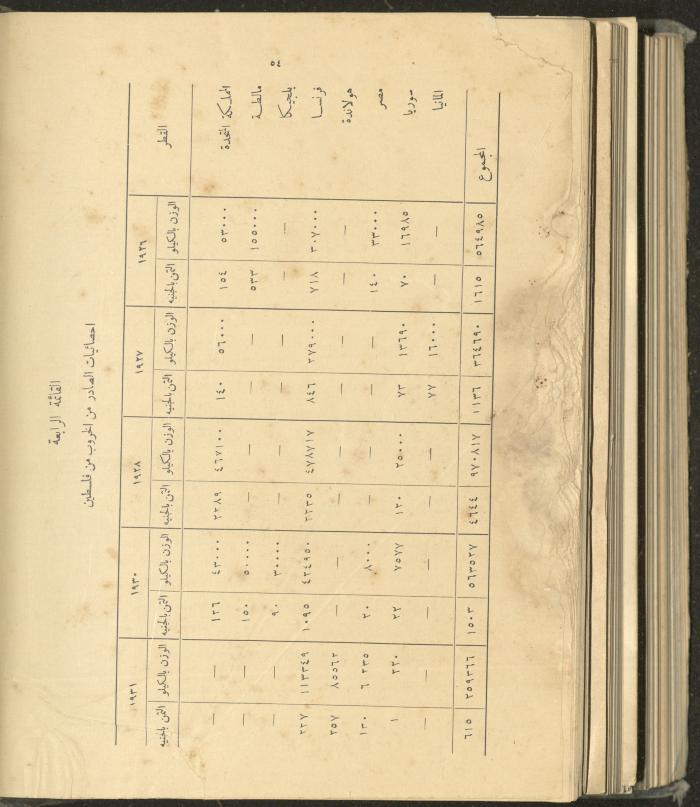 ٥
القائمة الرابعة
احصائيات الصادر من الخروب من فلسطين
القطر ١٩٢٦ ١٩٢٧ ١٩٢٨ ١٩٣٠ ١٩٣١
الوزن بالكيلو الثمن بالجنيه الوزن بالكيلو الثمن بالجنيه الوزن بالكيلو الثمن بالجنيه الوزن بالكيلو الثمن بالجنيه الوزن بالكيلو الثمن بالجنيه
المملكة المتحدة ٥٣٠٠٠ ١٥٤ ٥٦٠٠٠ ١٤٠ ٤٦٧١٠٠ ٢٢٨٩ ٤٣٠٠٠ ١٢٦ — —
مالطة ١٥٥٠٠٠ ٥٣٣ — — — — ٥٠٠٠٠ ١٥٠ — —
بلجيكا — — — — — — ٣٠٠٠٠ ٩٠ — —
فرنسا ٣٠٧٠٠٠ ٧١٨ ٢٧٩٠٠٠ ٨٤٦ ٤٧٨٧١٧ ٢٢٣٥ ٤٢٤٩٥٠ ١٠٩٥ ١١٣٣٤٩ ٢٢٧
هولاندة — — — — — — — — ٨٥٥٦٢ ٢٥٧
مصر ٣٣٠٠٠ ١٤٠ — — — — ٨٠٠٠ ٢٠ ٦ ٢٣٥ ١٣٠
سوريا ١٦٩٨٥ ٧٠ ١٣٦٩٠ ٧٣ ٢٥٠٠٠ ١٢٠ ٧٥٧٧ ٢٢ ٢٢٠ ١
المانيا — — ١٦٠٠٠ ٧٧ — — — — — —
المجموع ٥٦٤٩٨٥ ١٦١٥ ٣٦٤٦٩٠ ١١٣٦ ٩٧٠٨١٧ ٤٦٤٤ ٥٦٣٥٢٧ ١٥٠٣ ٢٥٩٣٦٦ ٦١٥